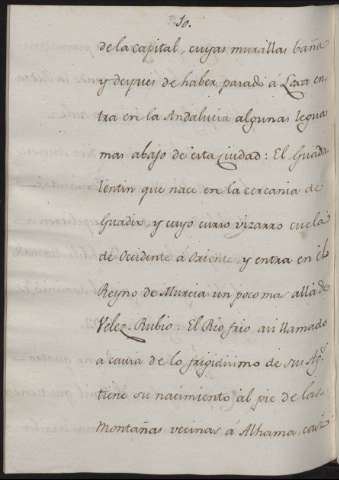 10.
de la capital, cuyas murallas baña
y despues de haber parado à Loxa en-
tra en la Andalucia algunas leguas
mas abajo de esta Ciudad: El Guada
lentin que nace en la cercania de
Guadix, y cuyo curso vizarro cuela
de Occidente à Oriente, y entra en el
Reyno de Murcia un poco mas alla de
Velez-Rubio: El Rio frio asi llamado
a causa de lo frigidisimo de su Ag.ª
tiene su nacimiento al pie de las
Montañas vecinas a Alhama, casi